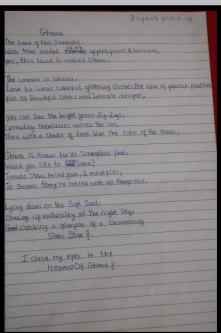 Ghana
The Land of two Summers.
With trees with apples, pears & bananas,
Yes, this land is called Ghana.
The women in Ghana.
Love to wear colorful glittering clothes,
Full of Beautiful colors and Intricate designs,
You can see the bright green
Spreading themselves across the
Then with a shade of dark blue the color of the
Ghana Is Known for its Scrumptious food.
Would you like to some?
Tomato Stew, fried yam, & meat pies,
It seems they're mixed with all things nice.
Lying down on the Soft Sand,
Staring up endlessly at the night Sky.
catching a glimpse of a Shimmering
Silver Star!
I close my eyes in the
Heavens Of Ghana!